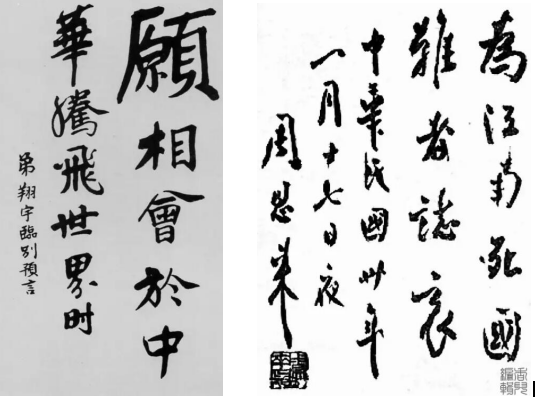 願相會於中
華騰飛世界时
弟翔宇臨別預言
為江南死國
難者誌哀
中華民國卅年
一月十七日夜
周恩来